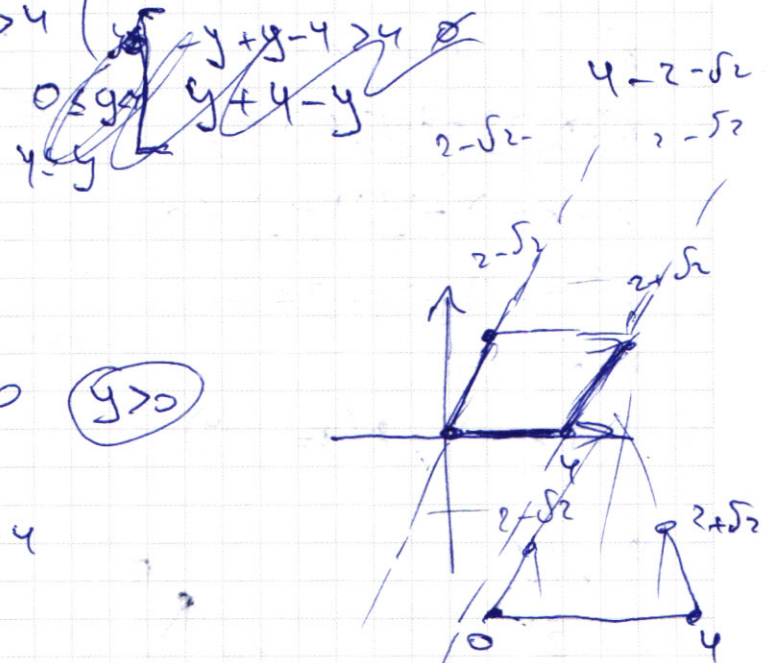 >4
-y+y-4>4 ∅
0≤y< y+4-y
4-2-√2
2-√2- 2-√2
2-√2
2+√2
0 y>0
4
4
2-√2
2+√2
0 4